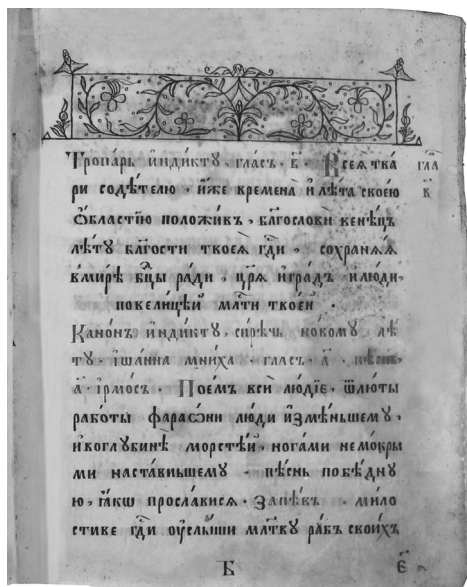 Тропарь и҆ндиктꙋ . гла́съ . в҃ . Всеѧ̀ тка гла́
ри содѣ́телю . и҆́же времена̀ и҆ лѣ́та скоею в҃
ѡ҆́бластїю положи́къ , благослови̏ кене́цъ
лѣ́тꙋ бл҃гости твоеѧ̀ гд҇и . сохранѧ́ѧ
в̾ ми́рѣ бц҃ы ра́ди , цр҃ѧ и҆ гра́дъ и҆ лю́ди ,
по вели́цѣй ма́ти твое́й .
Кано́нъ и҆нди́ктꙋ , си́рѣчь но́вомꙋ лѣ́
тꙋ . і҆ѡа́нна мни́ха . гла́съ . а҃ . пѣ́снь .
а҃ . і҆рмо́съ . Пое́мъ вси̏ лю́дїе , ѿ лю́ты
рабо́ты фараѡ́ни лю́ди и҆змѣ́ньшемꙋ ,
и҆ во глꙋбинѣ̀ морстѣ́й , нога́ми немо́кры
ми наста́вшьшемꙋ . пѣ́снь побѣ́днꙋ
ю , ꙗ҆́кѡ просла́висѧ . Запѣ́въ . ми́ло
стиве гд҇и ᲂу҆слы́ши мл҃твꙋ ра́бъ свои́хъ
Б є҃